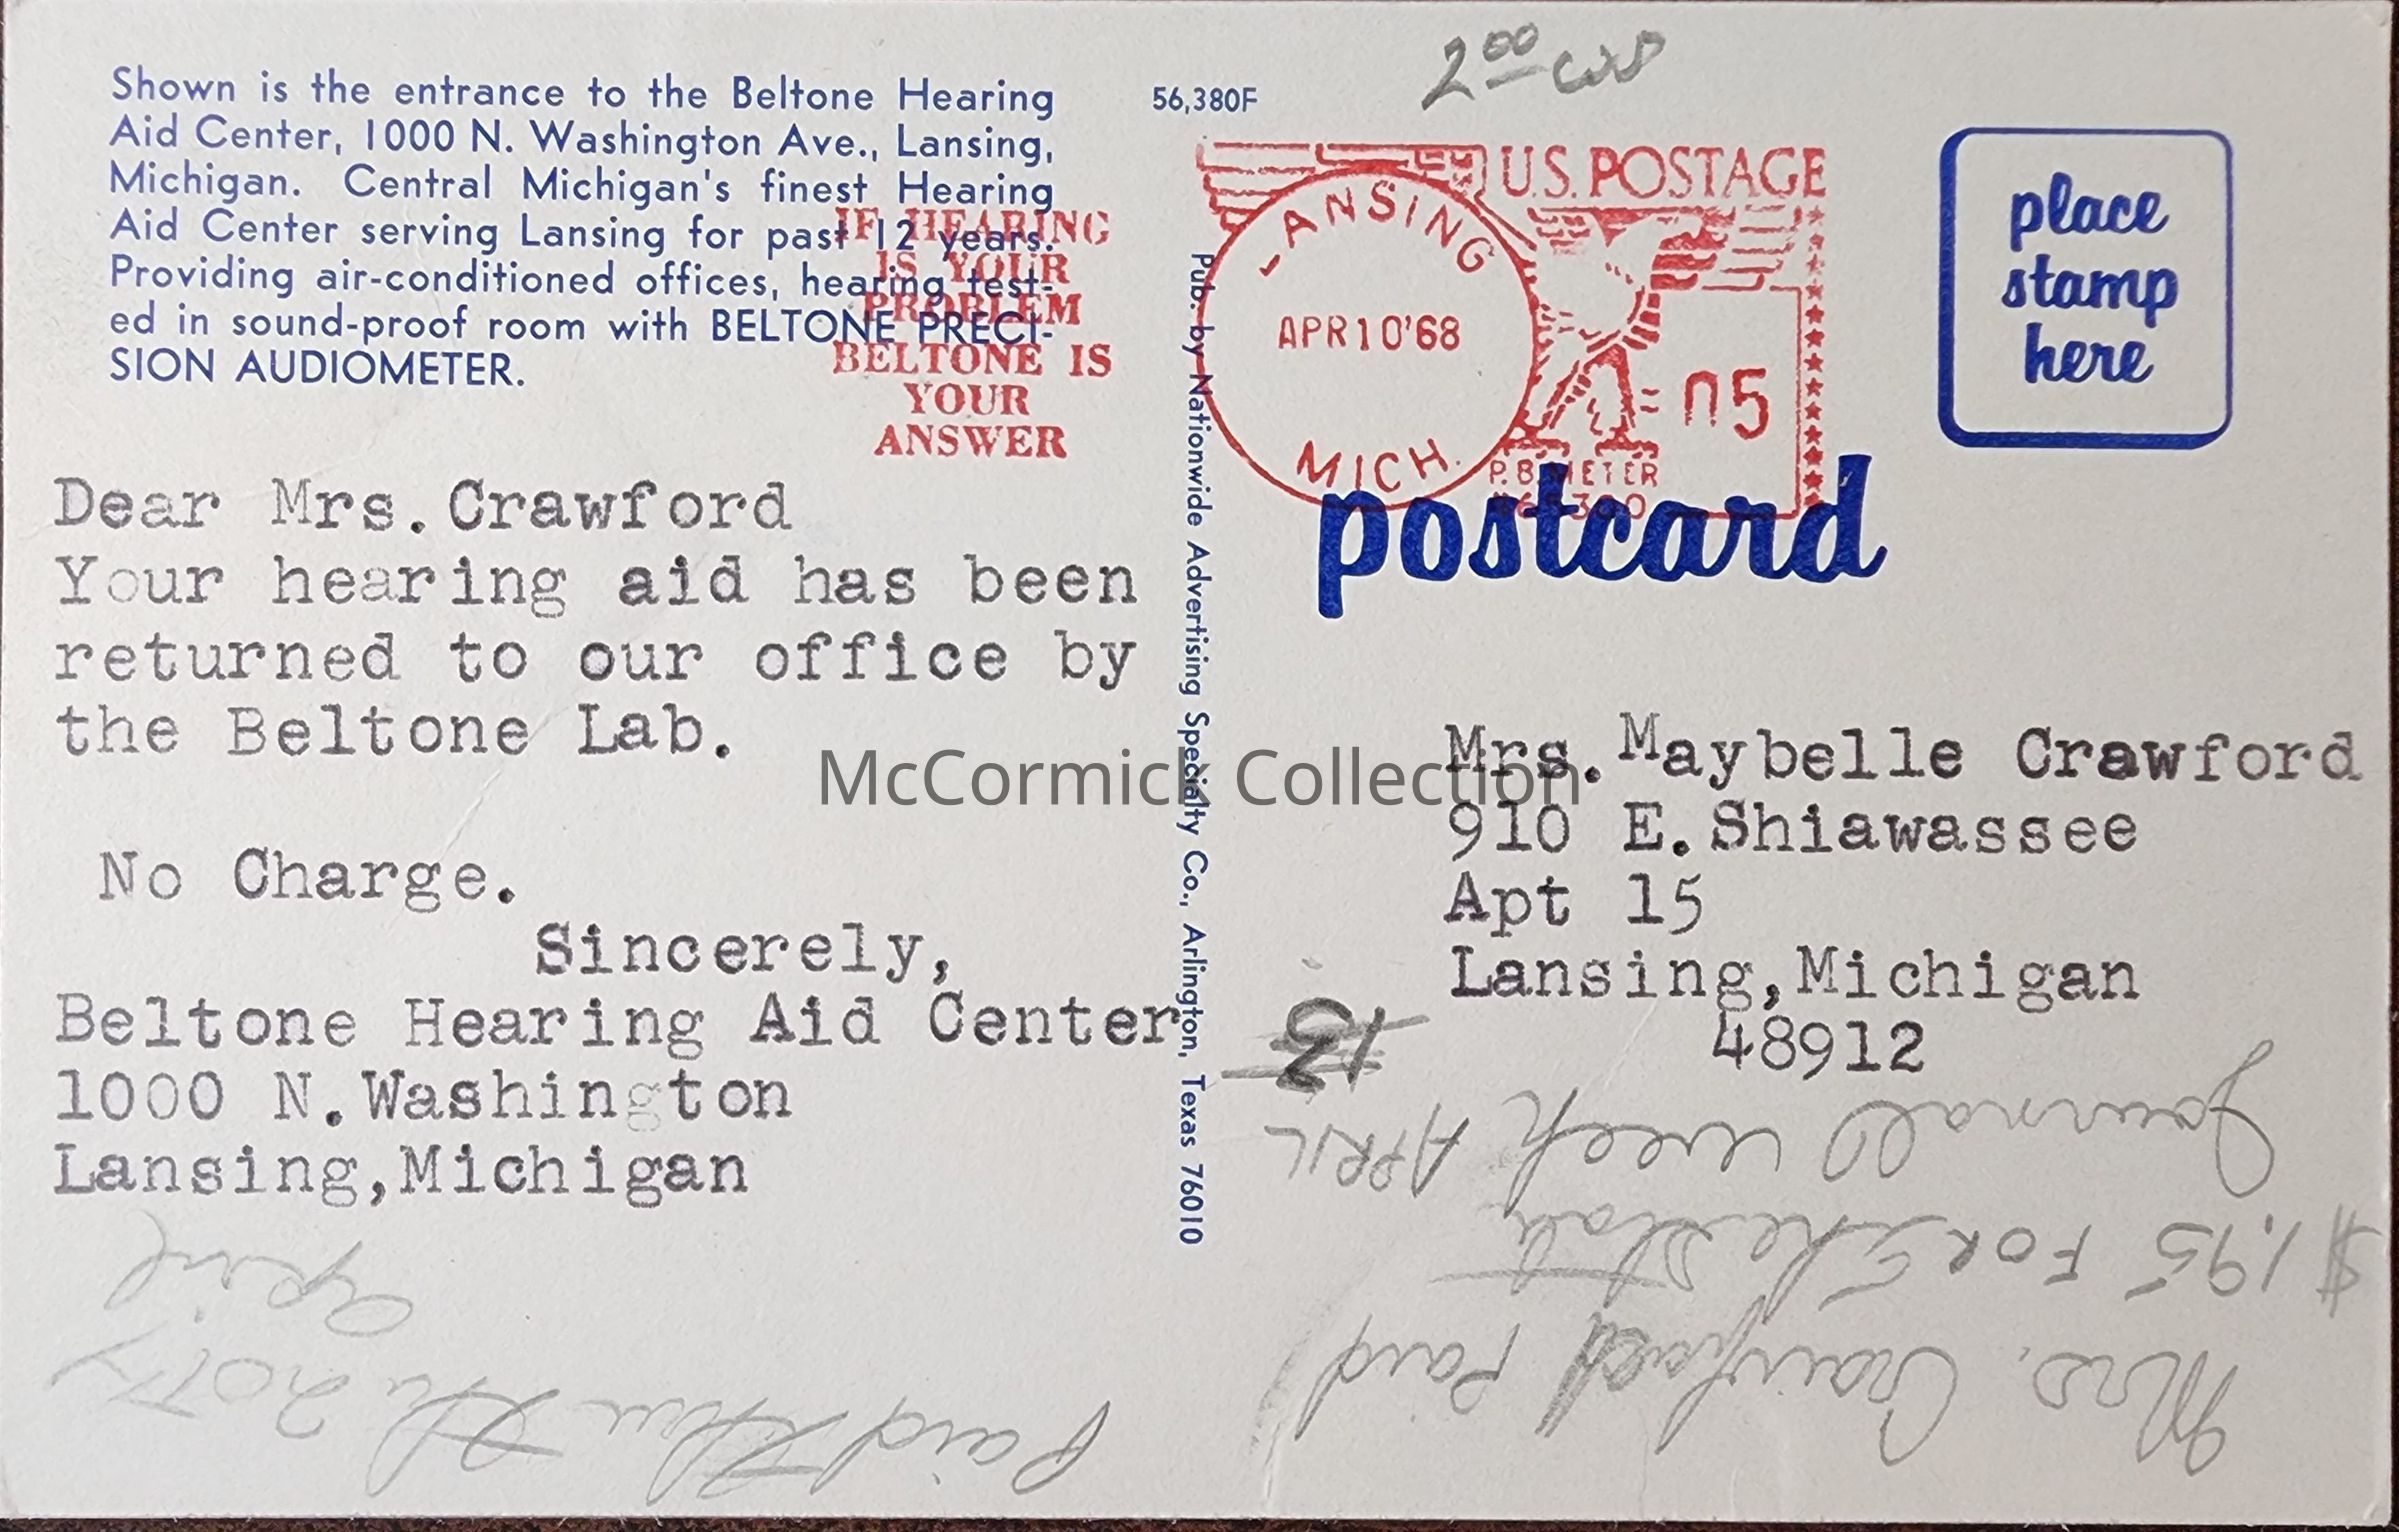 Shown is the entrance to the Beltone Hearing
Aid Center, 1000 N. Washington Ave., Lansing,
Michigan. Central Michigan's finest Hearing
Aid Center serving Lansing for past 12 years.
Providing air-conditioned offices, hearing test-
ed in sound-proof room with BELTONE PRECI-
SION AUDIOMETER.
56,380F
2 00
IF HEARING
IS YOUR
PROBLEM
BELTONE IS
YOUR
ANSWER
LANSING
APR 10 '68
MICH.
U.S. POSTAGE
05
P.B. METER
place
stamp
here
postcard
Dear Mrs.Crawford
Your hearing aid has been
returned to our office by
the Beltone Lab.
No Charge.
Sincerely,
Beltone Hearing Aid Center
1000 N.Washington
Lansing,Michigan
Pub. by Nationwide Advertising Specialty Co., Arlington, Texas 76010
McCormick Collection
Mrs.Maybelle Crawford
910 E.Shiawassee
Apt 15
Lansing,Michigan
48912
Mrs. Crawford Paid
$1.95 FOR The State
Journal week APRIL
13
Paid thru the 20th
april